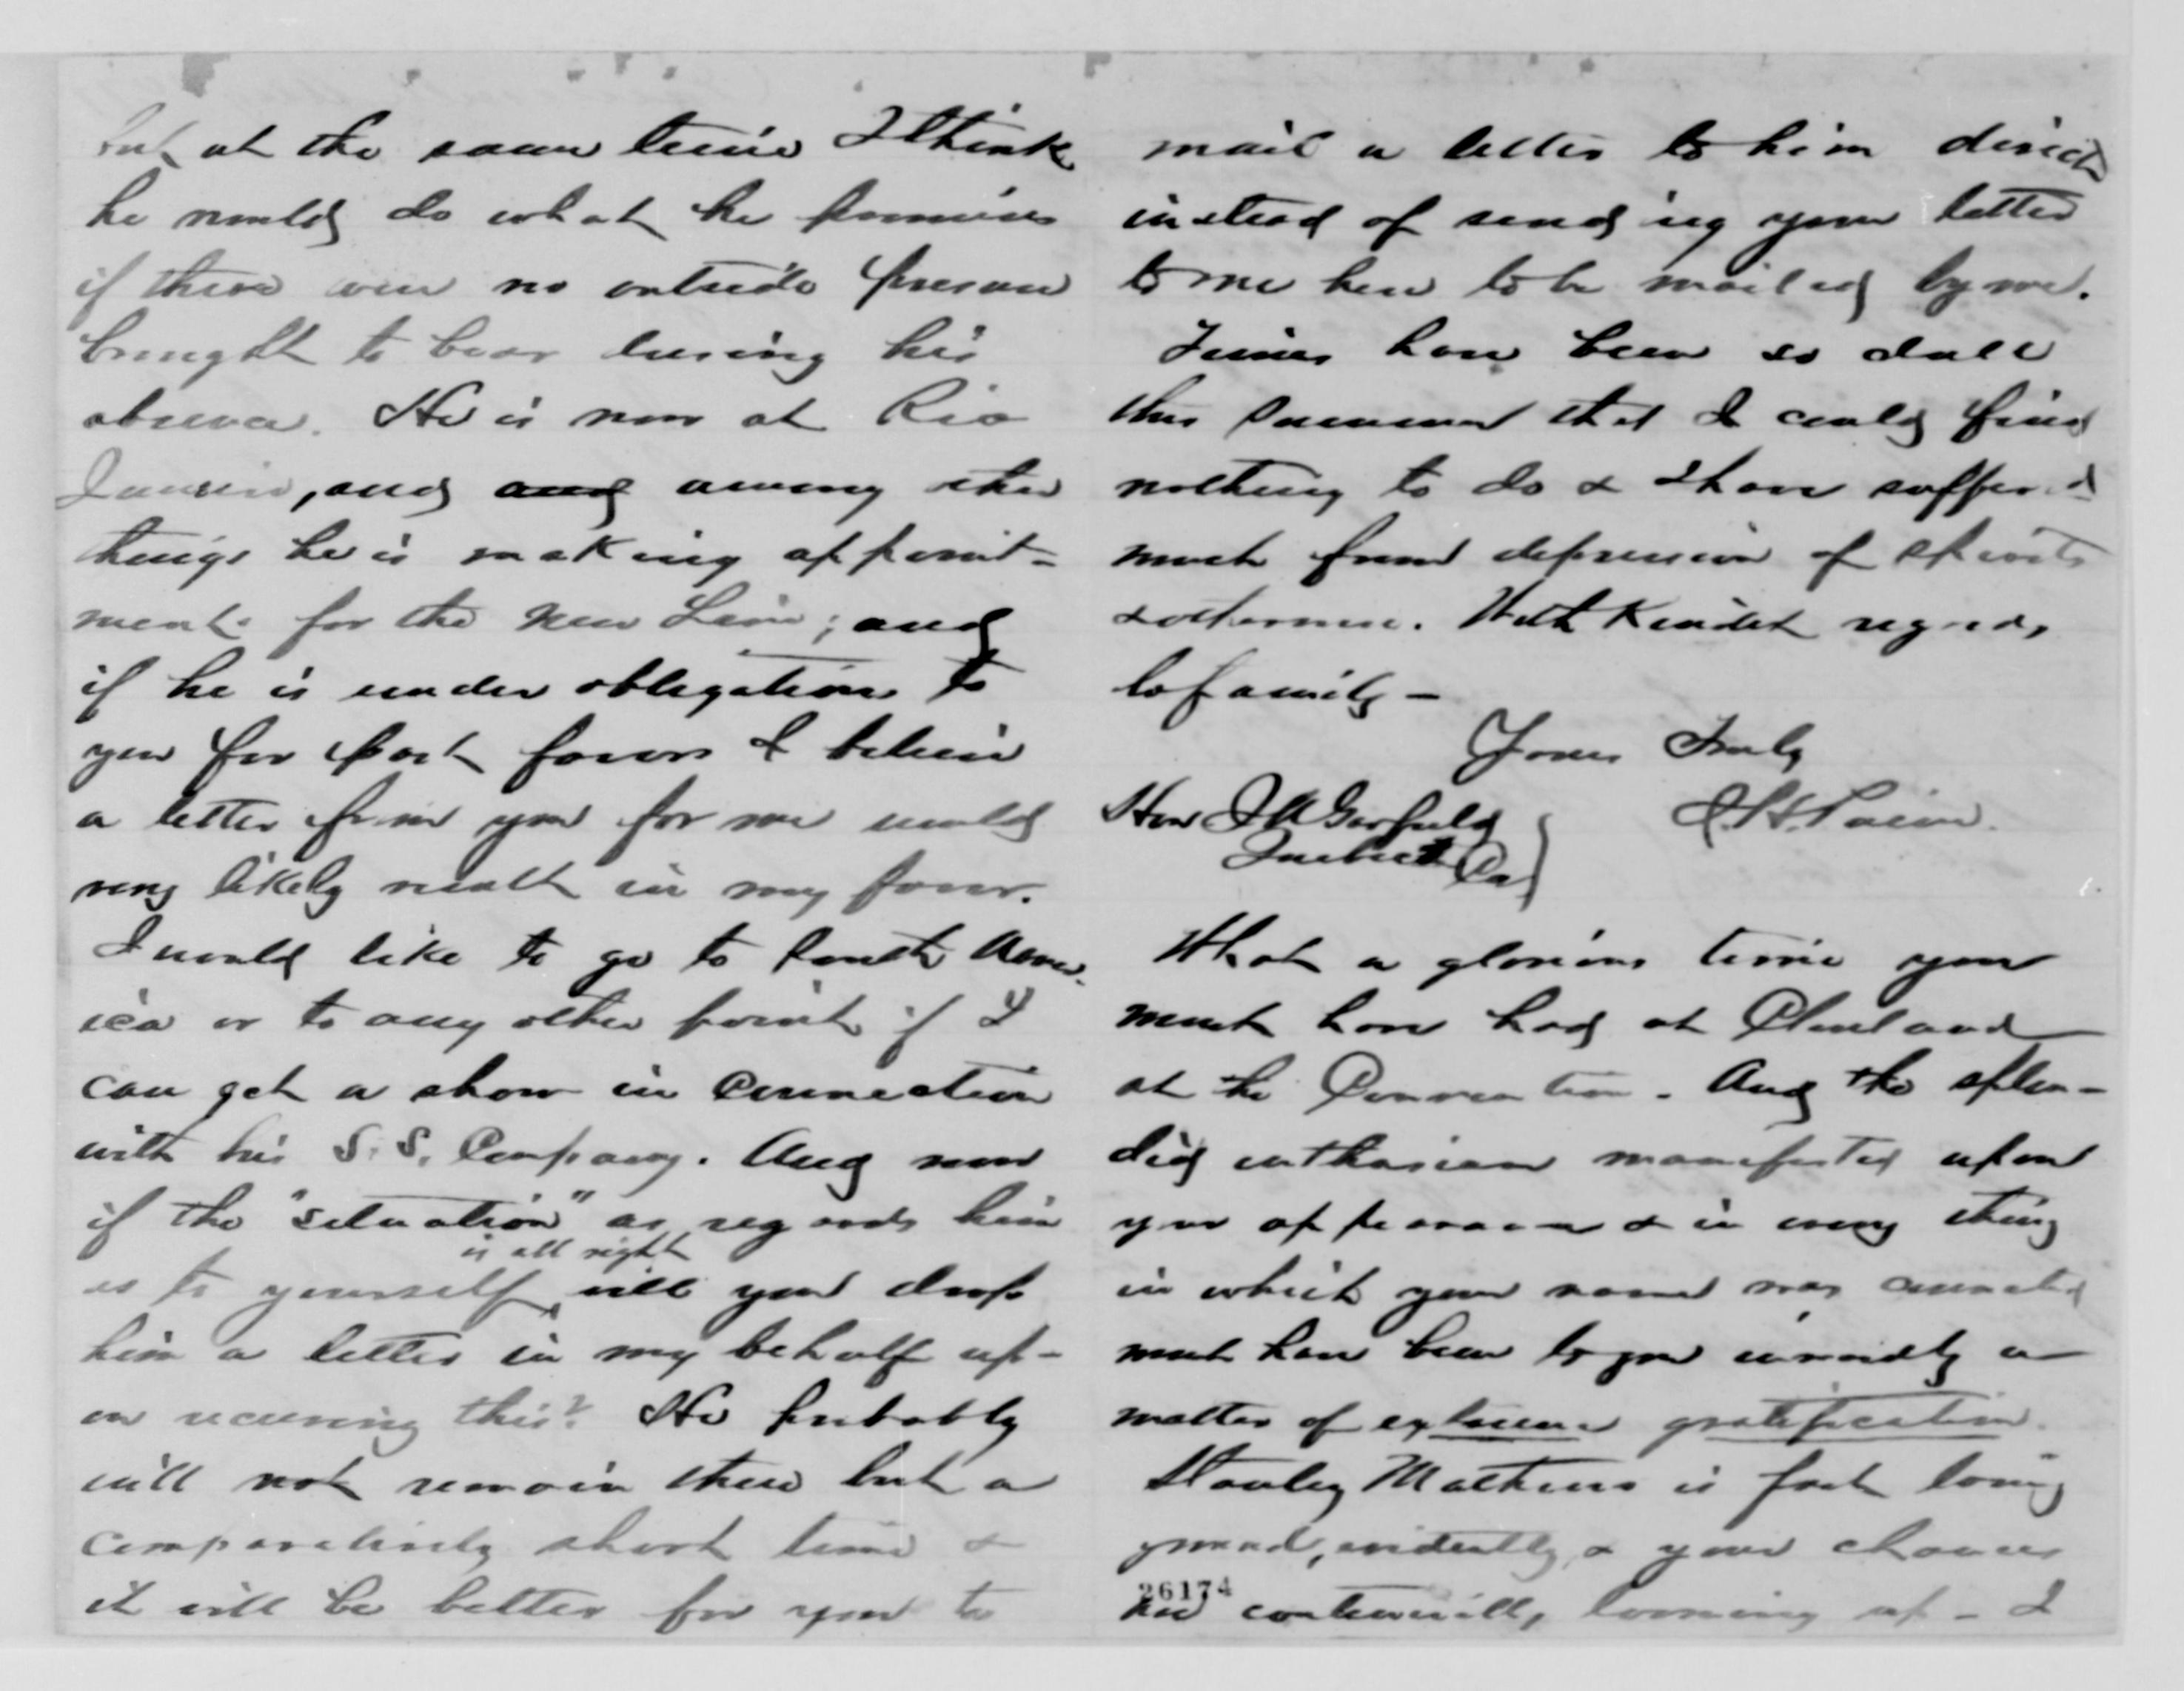 but at the same time I think
he would do what he promises
if there were no outside pressure
brought to bear during his
absence. He is now at Rio
Janeiro, and and among other
things he is making appoint-
ments for the new Line; and
if he is under obligations to
you for past favors I believe
a letter from you for me would
very likely result in my favor.
I would like to go to South Amer-
ica or to any other point if I
can get a show in connection
with his S. S. Company. And now
if the "situation" as regards him
is all right
as to yourself will you drop
him a letter in my behalf up-
on receiving this? He probably
will not remain there but a
comparatively short time &
it will be better for you to
mail a letter to him direct
instead of sending your letter
to me here to be mailed by me.
Times have been so dull
this summer that I could find
nothing to do & I have suffered
much from depression of spirits
& otherwise. With kindest regards
to family -
Yours Truly
Hon J A Garfield
Paine.
What a glorious time you
must have had at Cleveland
at the Convention. And the splen-
did enthusiasm manifested upon
your appearance & in every thing
in which your name was connected
must have been to you inwardly a
matter of extreme gratification.
Stanley Mathews is fast losing
ground, evidently, & your chances
are continually looming up - I
26174